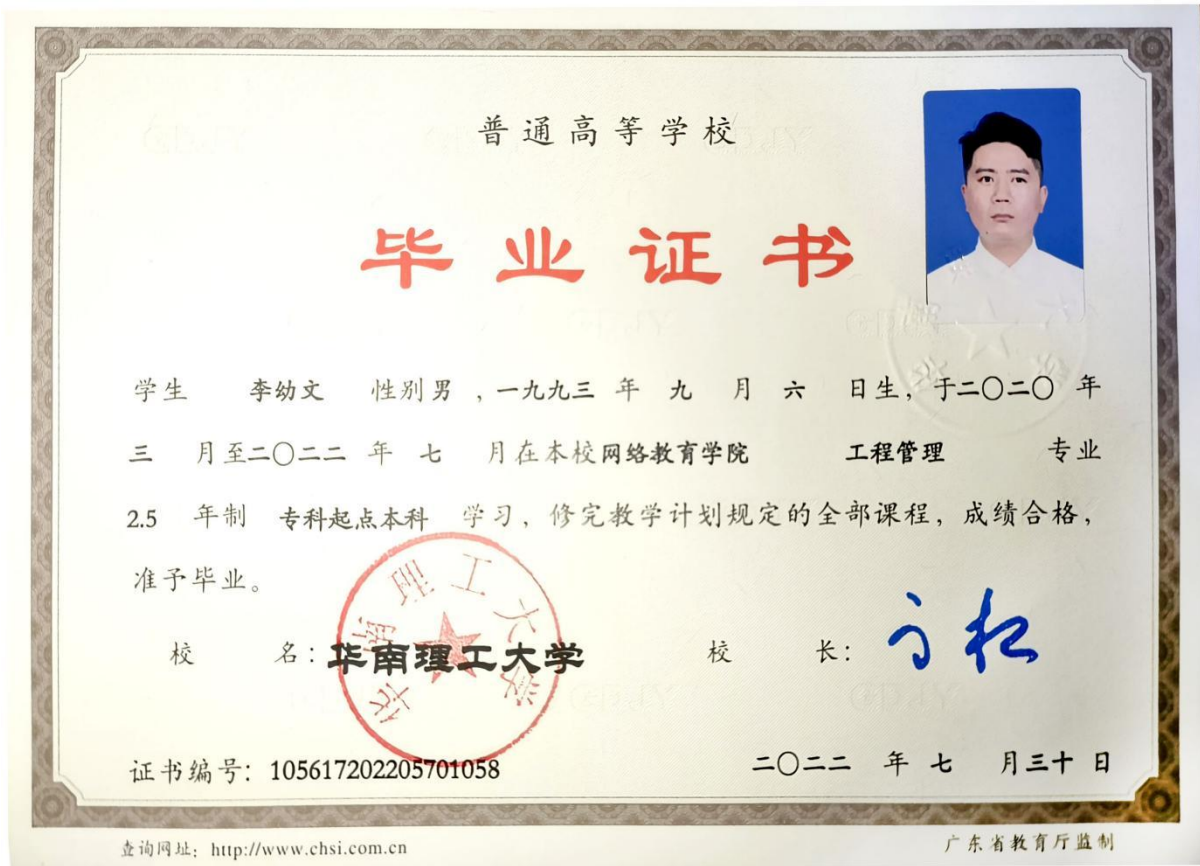 普通高等学校
毕业证书
学生 李幼文 性别男，一九九三 年 九 月 六 日生，于二〇二〇 年
三 月至二〇二二 年 七 月在本校网络教育学院 工程管理 专业
2.5 年制 专科起点本科 学习，修完教学计划规定的全部课程，成绩合格，
准予毕业。
华南理工大学
校 名：华南理工大学 校 长：
证书编号：105617202205701058 二〇二二 年 七 月三十 日
查询网址：http://www.chsi.com.cn 广东省教育厅监制